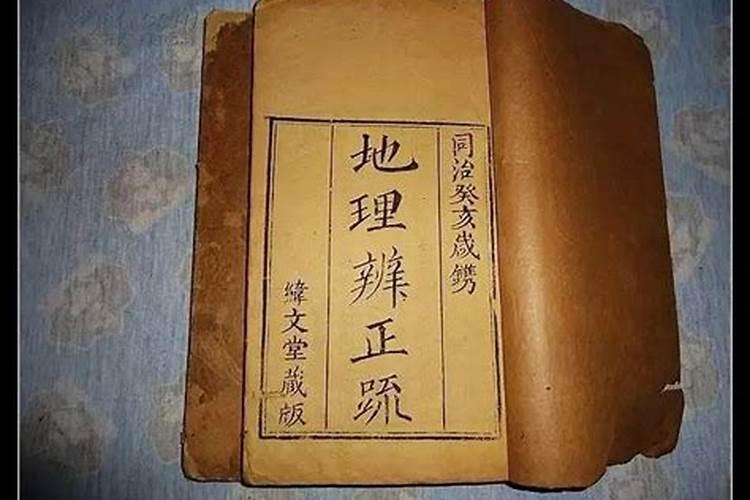 同治癸亥歳鐫
地理辨正疏
緯文堂藏版